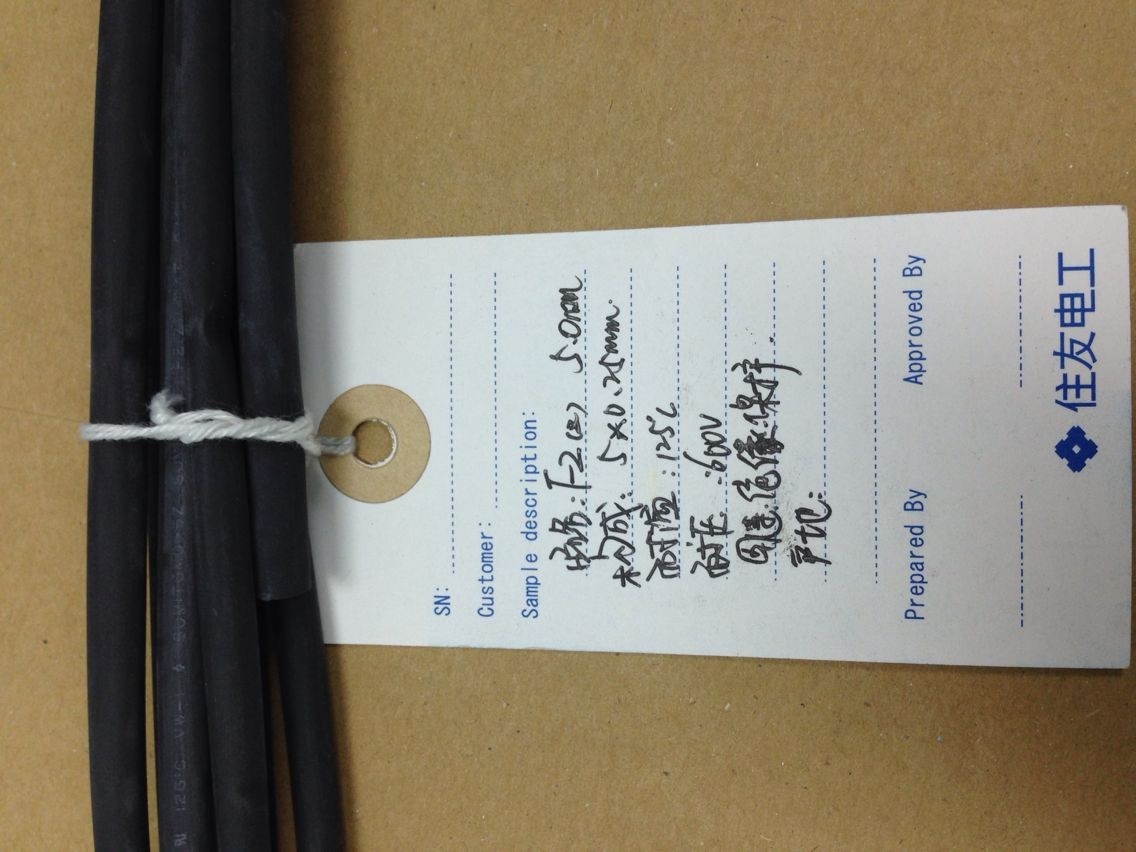 SN:
Customer:
Sample description:
牌号: F2(Z) 5.0mm
构成: 5×0.25mm
耐温: 125℃
耐压: 600V
用途: 绝缘保护.
产地:
Prepared By Approved By
住友电工
125°C VW-1